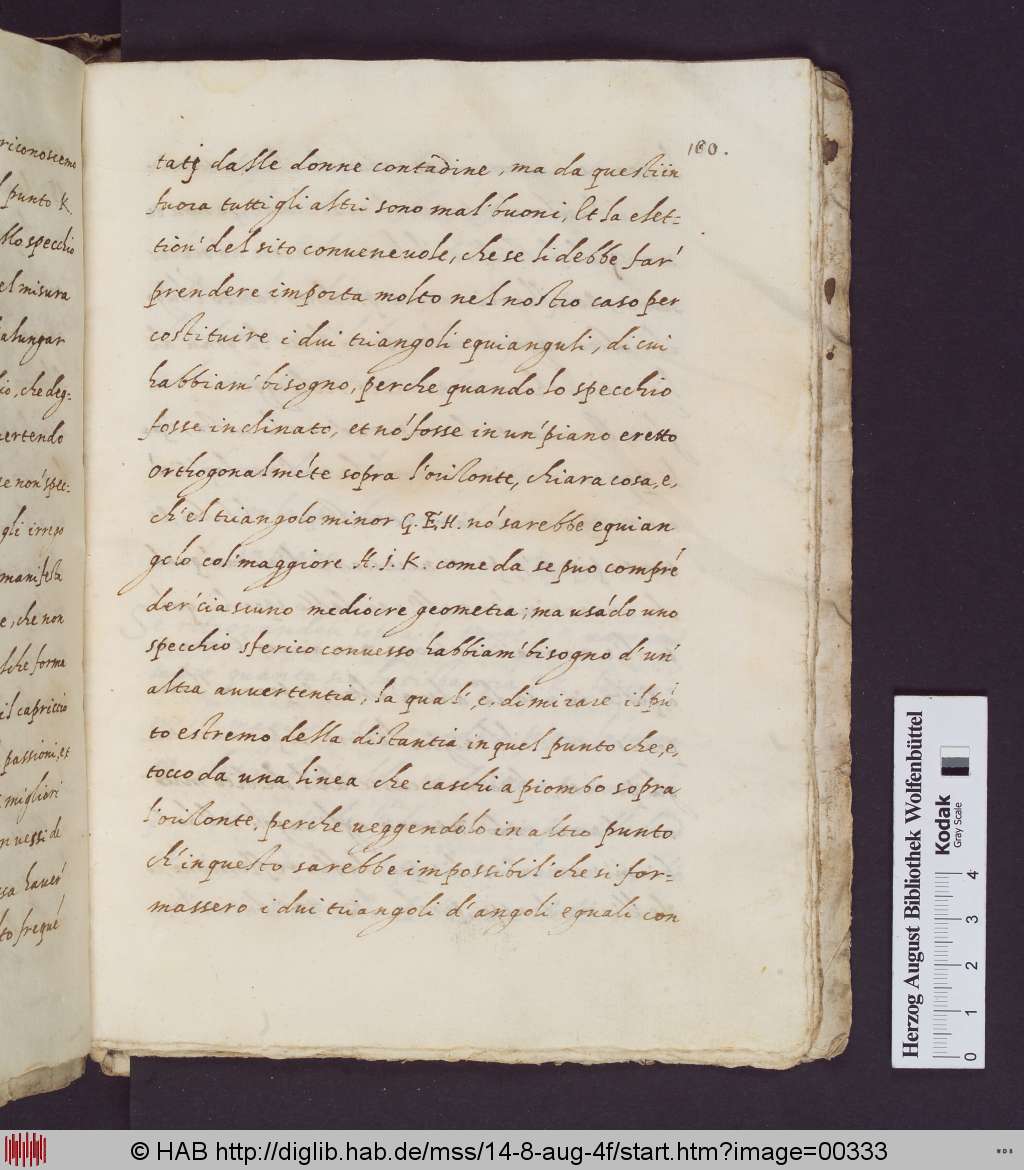 riconoscemo
l punto K.
llo specchio
el misura
alungar
io, che deg-
uertendo
se non' spec-
gli irreso
manifesta
e, che non
lche forma
il capriccio
passioni, et
migliori
nuessi de
ssa hauer'
to frequé
160.
tati dalle donne contadine, ma da questi in
fuora tutti gli altri sono mal' buoni, Et la elet-
tion' del sito conueneuole, che se li debbe far'
prendere importa molto nel nostro caso per
costituire i dui triangoli equianguli, di cui
habbiam' bisogno, perche quando lo specchio
fosse inclinato, et nó fosse in un' piano eretto
orthogonalméte sopra l'orizonte, chiara cosa, e,
ch'el triangolo minor G. E, H. nó sarebbe equian
golo col' maggiore H. I. K. come da se puo compré
der' ciascuno mediocre geometra; ma usádo uno
specchio sferico conuesso habbiam' bisogno d'un'
altra auuertentia, la qual', e, di mirare il pú
to estremo della distantia in quel punto che, e,
tocco da una linea che caschi a piombo sopra
l'orizonte, perche ueggendolo in altro punto
ch'in questo sarebbe impossibil' che si for-
massero i dui triangoli d'angoli eguali con
Herzog August Bibliothek Wolfenbüttel
Kodak
Gray Scale
0 1 2 3 4
© HAB http://diglib.hab.de/mss/14-8-aug-4f/start.htm?image=00333